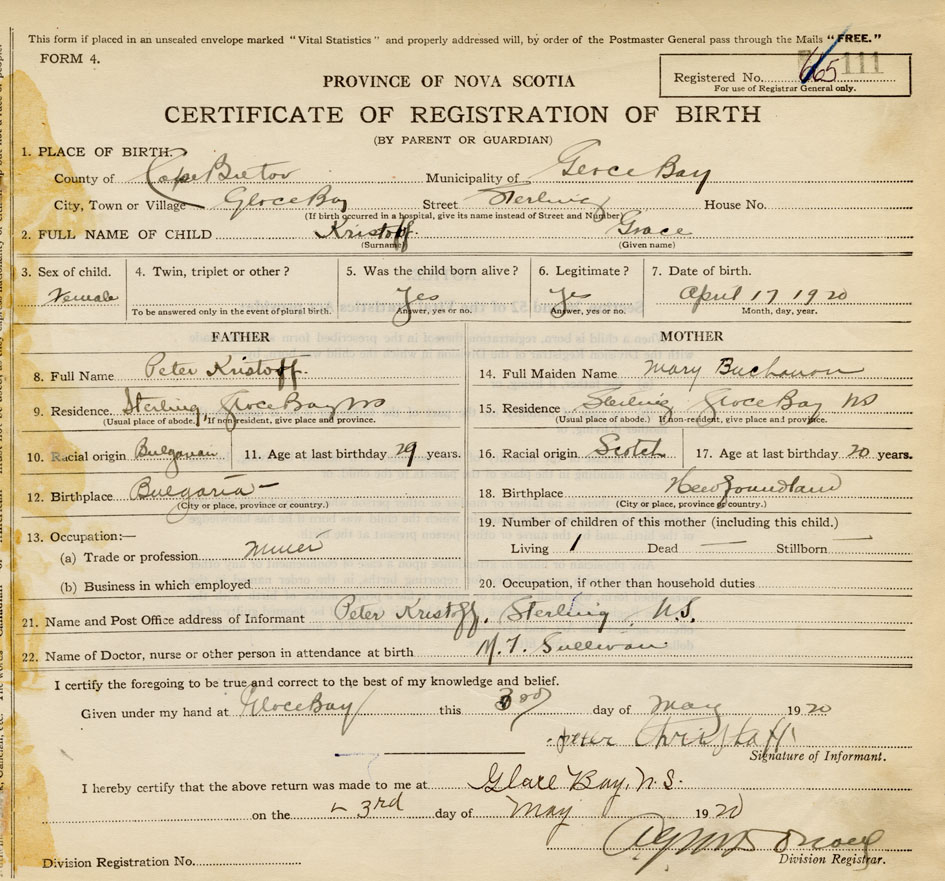 This form if placed in an unsealed envelope marked "Vital Statistics" and properly addressed will, by order of the Postmaster General pass through the Mails "FREE."
FORM 4.
Registered No. 665 111
For use of Registrar General only.
PROVINCE OF NOVA SCOTIA
CERTIFICATE OF REGISTRATION OF BIRTH
(BY PARENT OR GUARDIAN)
1. PLACE OF BIRTH.
County of Cape Breton Municipality of Glace Bay
City, Town or Village Glace Bay Street Sterling House No.
(If birth occurred in a hospital, give its name instead of Street and Number)
2. FULL NAME OF CHILD Kristoff Grace
(Surname) (Given name)
3. Sex of child. 4. Twin, triplet or other? 5. Was the child born alive? 6. Legitimate? 7. Date of birth.
Female Yes Yes April 17 1920
To be answered only in the event of plural birth. Answer, yes or no. Answer, yes or no. Month, day, year.
FATHER MOTHER
8. Full Name Peter Kristoff. 14. Full Maiden Name Mary Buchanon
9. Residence. Sterling, Glace Bay NS 15. Residence Sterling Glace Bay NS
(Usual place of abode.) If non-resident, give place and province. (Usual place of abode.) If non-resident, give place and province.
10. Racial origin Bulgarian 11. Age at last birthday 29 years. 16. Racial origin Scotch 17. Age at last birthday 20 years.
12. Birthplace Bulgaria – 18. Birthplace Newfoundland
(City or place, province or country.) (City or place, province or country.)
13. Occupation:— 19. Number of children of this mother (including this child.)
(a) Trade or profession Miner Living 1 Dead — Stillborn —
(b) Business in which employed 20. Occupation, if other than household duties
21. Name and Post Office address of Informant Peter Kristoff, Sterling, N.S.
22. Name of Doctor, nurse or other person in attendance at birth M. T. Sullivan
I certify the foregoing to be true and correct to the best of my knowledge and belief.
Given under my hand at Glace Bay this 3rd day of May 1920
Peter Christoff
Signature of Informant.
I hereby certify that the above return was made to me at Glace Bay, N.S.
on the 3rd day of May 1920
Division Registration No. Division Registrar.